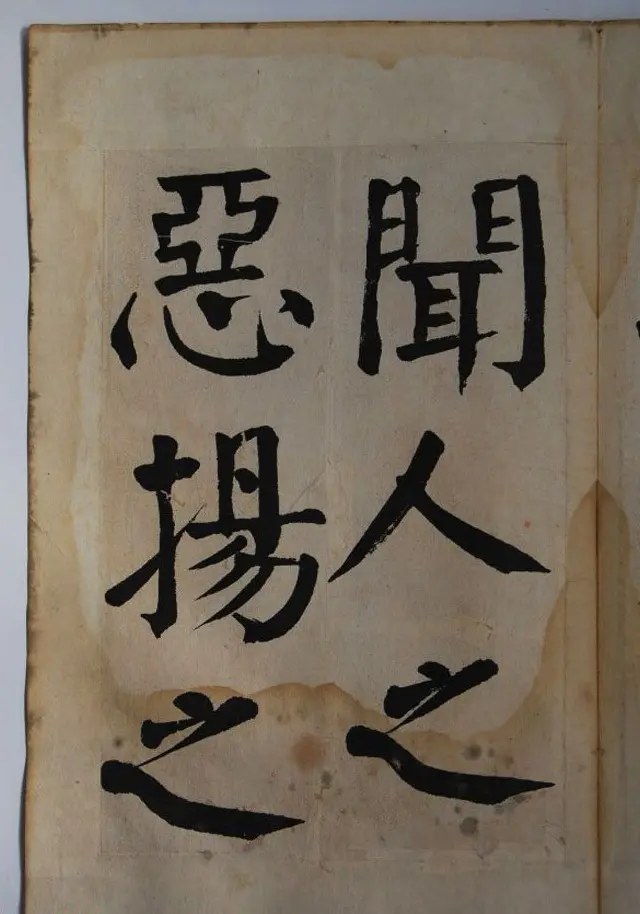 聞人之
惡揚之